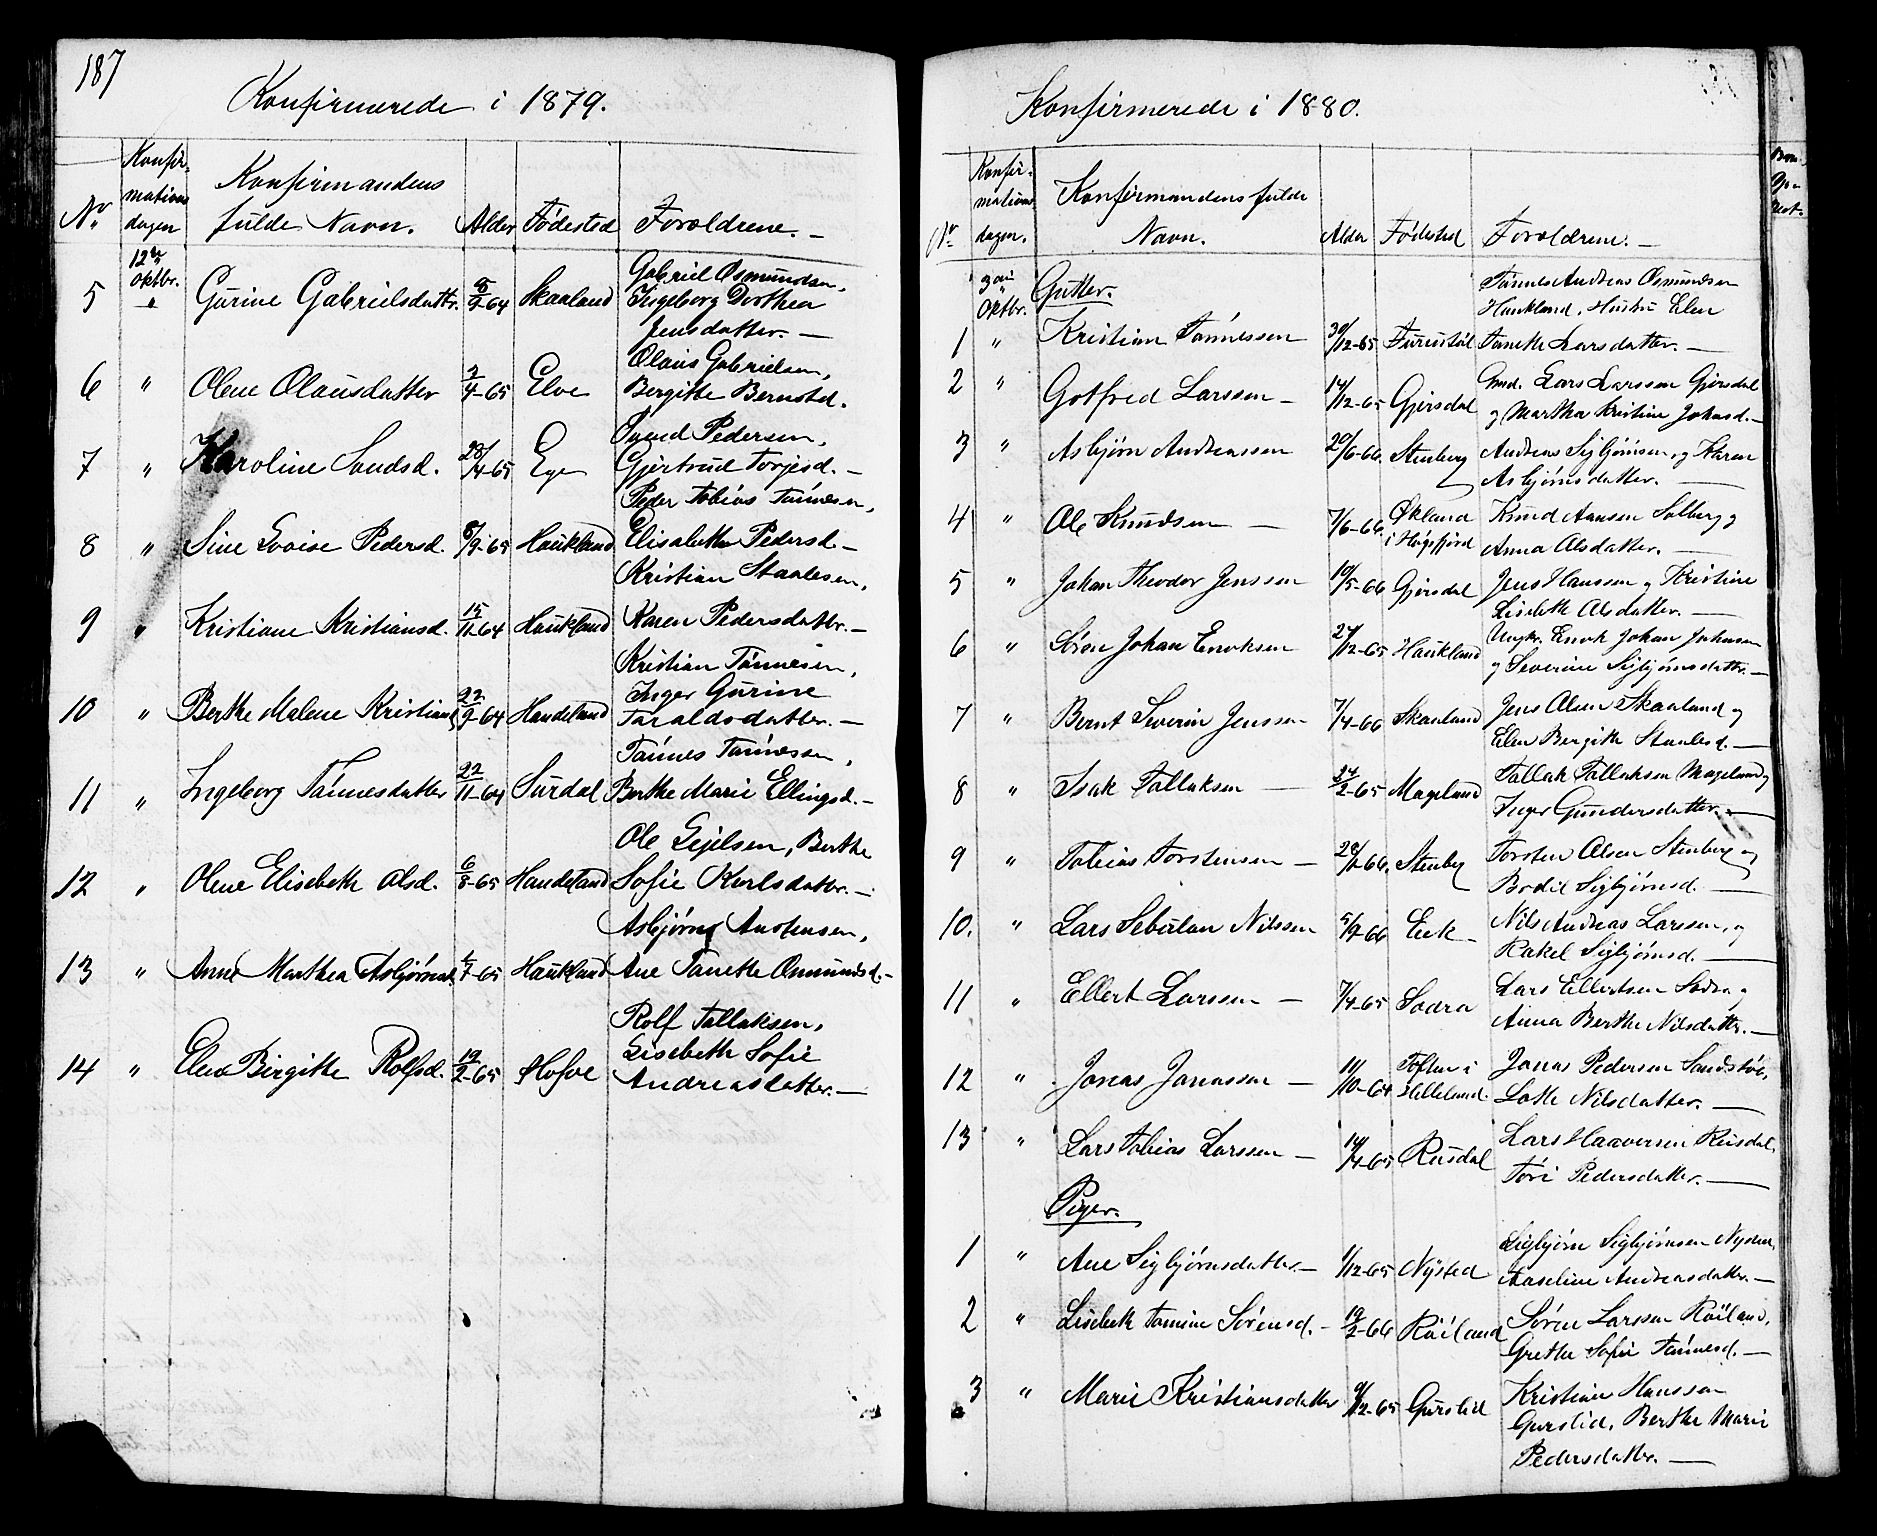 187
Konfirmerede i 1879.
No. Konfirmations dagen Konfirmandens fulde Navn. Alder Fødested Foroldrene. —
12te Oktbr.
5 " Gurine Gabrielsdattr. 64 Skaaland Gabriel Osmundsen,
Ingeborg Dorthea
Jensdatter. —
6 " Olene Olausdatter 2/4-65 Elve Olaus Gabrielsen,
Bergitte Berntsd.
7 " Karoline 28/4-65 Ege Pedersen,
Gjertrud Torjesd. —
8 " Sine Lovise Pedersd. 8/9-65 Haukland Peder Tobias Tønnesen,
Elisabeth Pedersd. —
9 " Kristiane Kristiansd. 15/11-64 Haukland Kristian Staalesen,
Karen Pedersdattr. —
10 " Berthe Malene Kristians 22/9-64 Handeland Kristian Tønnesen,
Inger Gurine
Taraldsdatter. —
11 " Ingeborg Tønnesdatter 22/11-64 Surdal Tønnes Tønnessen,
Berthe Marie Ellingsd. —
12 " Olene Elisebeth Olsd. 6/8-65 Handeland Ole Gjelsen, Berthe
Sofie Karlsdattr. —
13 " Anne Marthea Asbjørnsd. 65 Haukland Asbjørn Austensen,
Ane Tanette Osmundsd. —
14 " Elen Birgitte Rolfsd. 19/2-65 Hofve Rolf Tallaksen,
Lisebeth Sofie
Andreasdatter. —
Konfirmerede i 1880.
No. Konfirmations dagen. Konfirmandens fulde Navn. Alder Fødested Foroldrene. —
3die Oktbr. Gutter.
1 " Kristian Tønnessen 30/12-65 Furustøl Tønnes Andreas Osmundsen
Haukland, Hustru Elen
Tanette Larsdatter. —
2 " Gotfred Larssen — 14/12-65 Gjersdal Gmd. Lars Larssen Gjersdal
og Marthea Kristine Johnsd. —
3 " Asbjørn Andreassen 20/6-66. Stenberg Andreas Sigbjørnsen, og Karen
Asbjørnsdatter. —
4 " Ole Knudsen — 7/6-66 Økland i Høgsfjord Knud Aansen Solberg og
Anna Olsdatter. —
5 " Johan Theodor Jenssen 19/5-66 Gjersdal Jens Hanssen og Kristine
Lisebeth Olsdatter. —
6 " Søren Johan Enoksen 27/12-65 Haukland Ungkr. Enok Johan Johnsen
og Severine Sigbjørnsdattr. —
7 " Bernt Severin Jenssen 7/4-66 Skaaland Jens Olsen Skaaland og
Elen Bergitte Staalesd. —
8 " Isak Tallaksen — 24/2-65 Mageland Tallak Tallaksen Mageland og
Inger Gundersdatter. —
9 " Tobias Torstensen — 66. Stenberg Torsten Olsen Stenberg og
Bodil Sigbjørnsd. —
10. " Lars Sebulon Nilssen 5/9-66 Eek — Nils Andreas Larssen, og
Rakel Sigbjørnsd. —
11 " Ellert Larssen — 7/4-65 Sodra Lars Ellertsen Sodra og
Anna Berthe Nilsdattr. —
12 " Jonas Jonassen — 11/10-64 Toften i Helleland. Jonas Pedersen Sandstøl,
Lotte Nilsdatter. —
13 " Lars Tobias Larssen — 14/4-65 Reusdal Lars Haaversen Reusdal,
Tøri Pedersdatter. —
Piger.
1 " Ane Sigbjørnsdatter. — 1/12-65 Nysted Sigbjørn Sigbjørnsen Nysted,
Aaseline Andreasdatter. —
2 " Lisebeth Tomine Sørensd. — 19/2-66 Røiland Søren Larssen Røiland,
Grethe Sofie Tønnesd. —
3 " Marie Kristiansdatter 9/12-65 Gyuslid Kristian Hanssen
Gyuslid, Berthe Marie
Pedersdatter. —